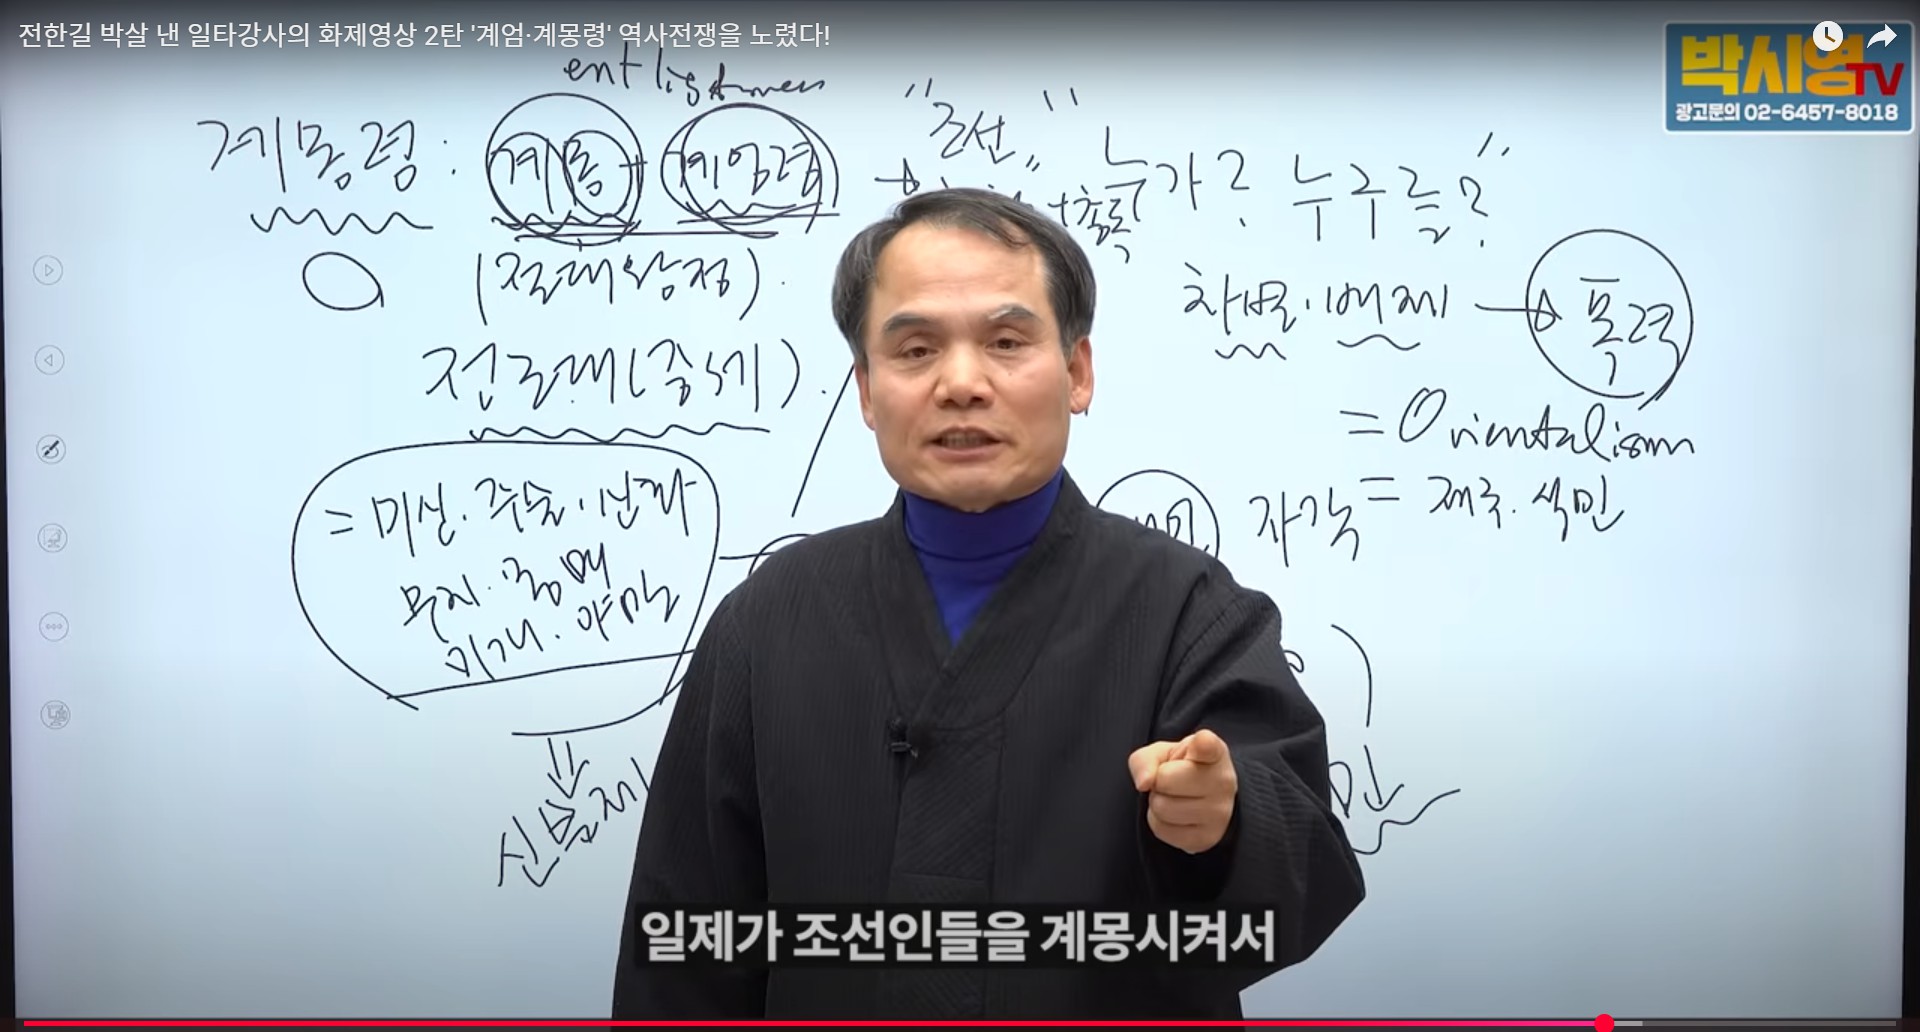 전한길 박살 낸 일타강사의 화제영상 2탄 '계엄·계몽령' 역사전쟁을 노렸다!
박시영TV
광고문의 02-6457-8018
계몽령 : 계몽 + 계엄령 → "조선" 누가? 누구를?"
(절대왕정).
차별·배제 → 폭력
전근대(중세).
= Orientalism
= 미신·주술·
자각 = 제국·식민
무지·몽매
미개·야만
신분제
일제가 조선인들을 계몽시켜서